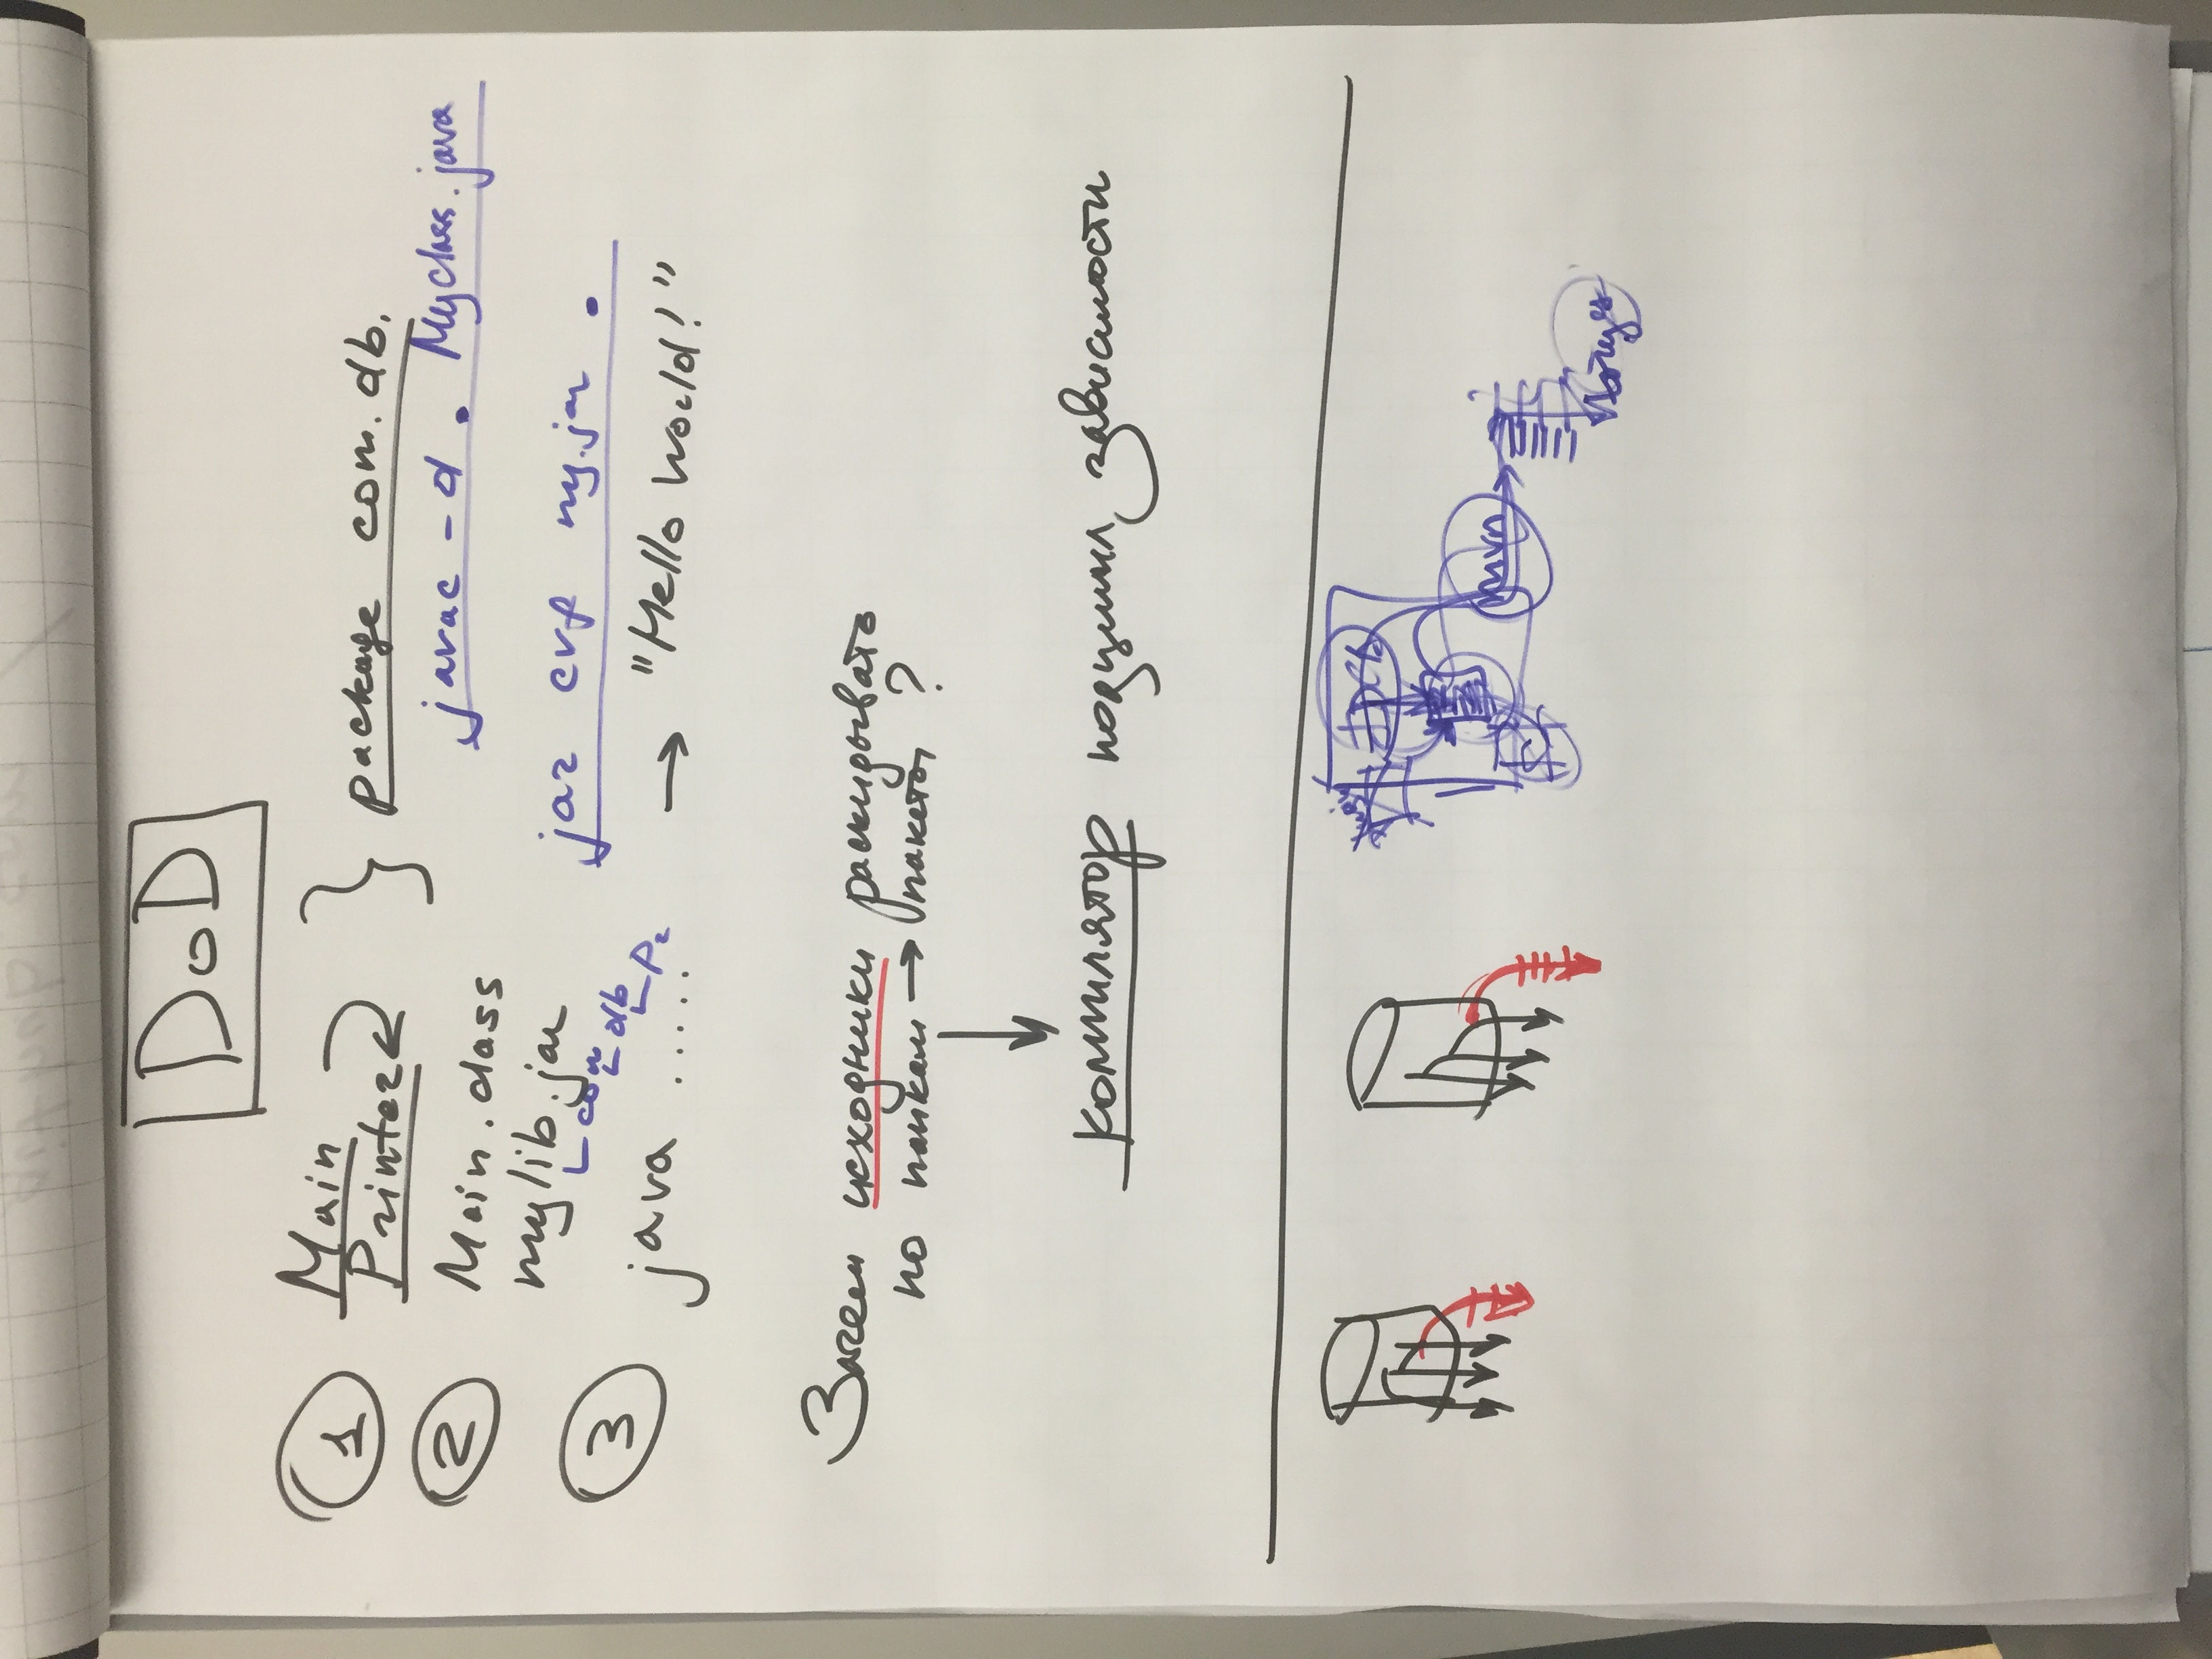 DoD
1 Main
Printer } package com.db.
javac -d . Myclass.java
2 Main.class
mylib.jar
com
db
jar cvf my.jar .
3 java ..... → "Hello World!"
Зачем исходники раскидывать
по папкам → пакеты ?
компилятор подцепил зависимости
mvn